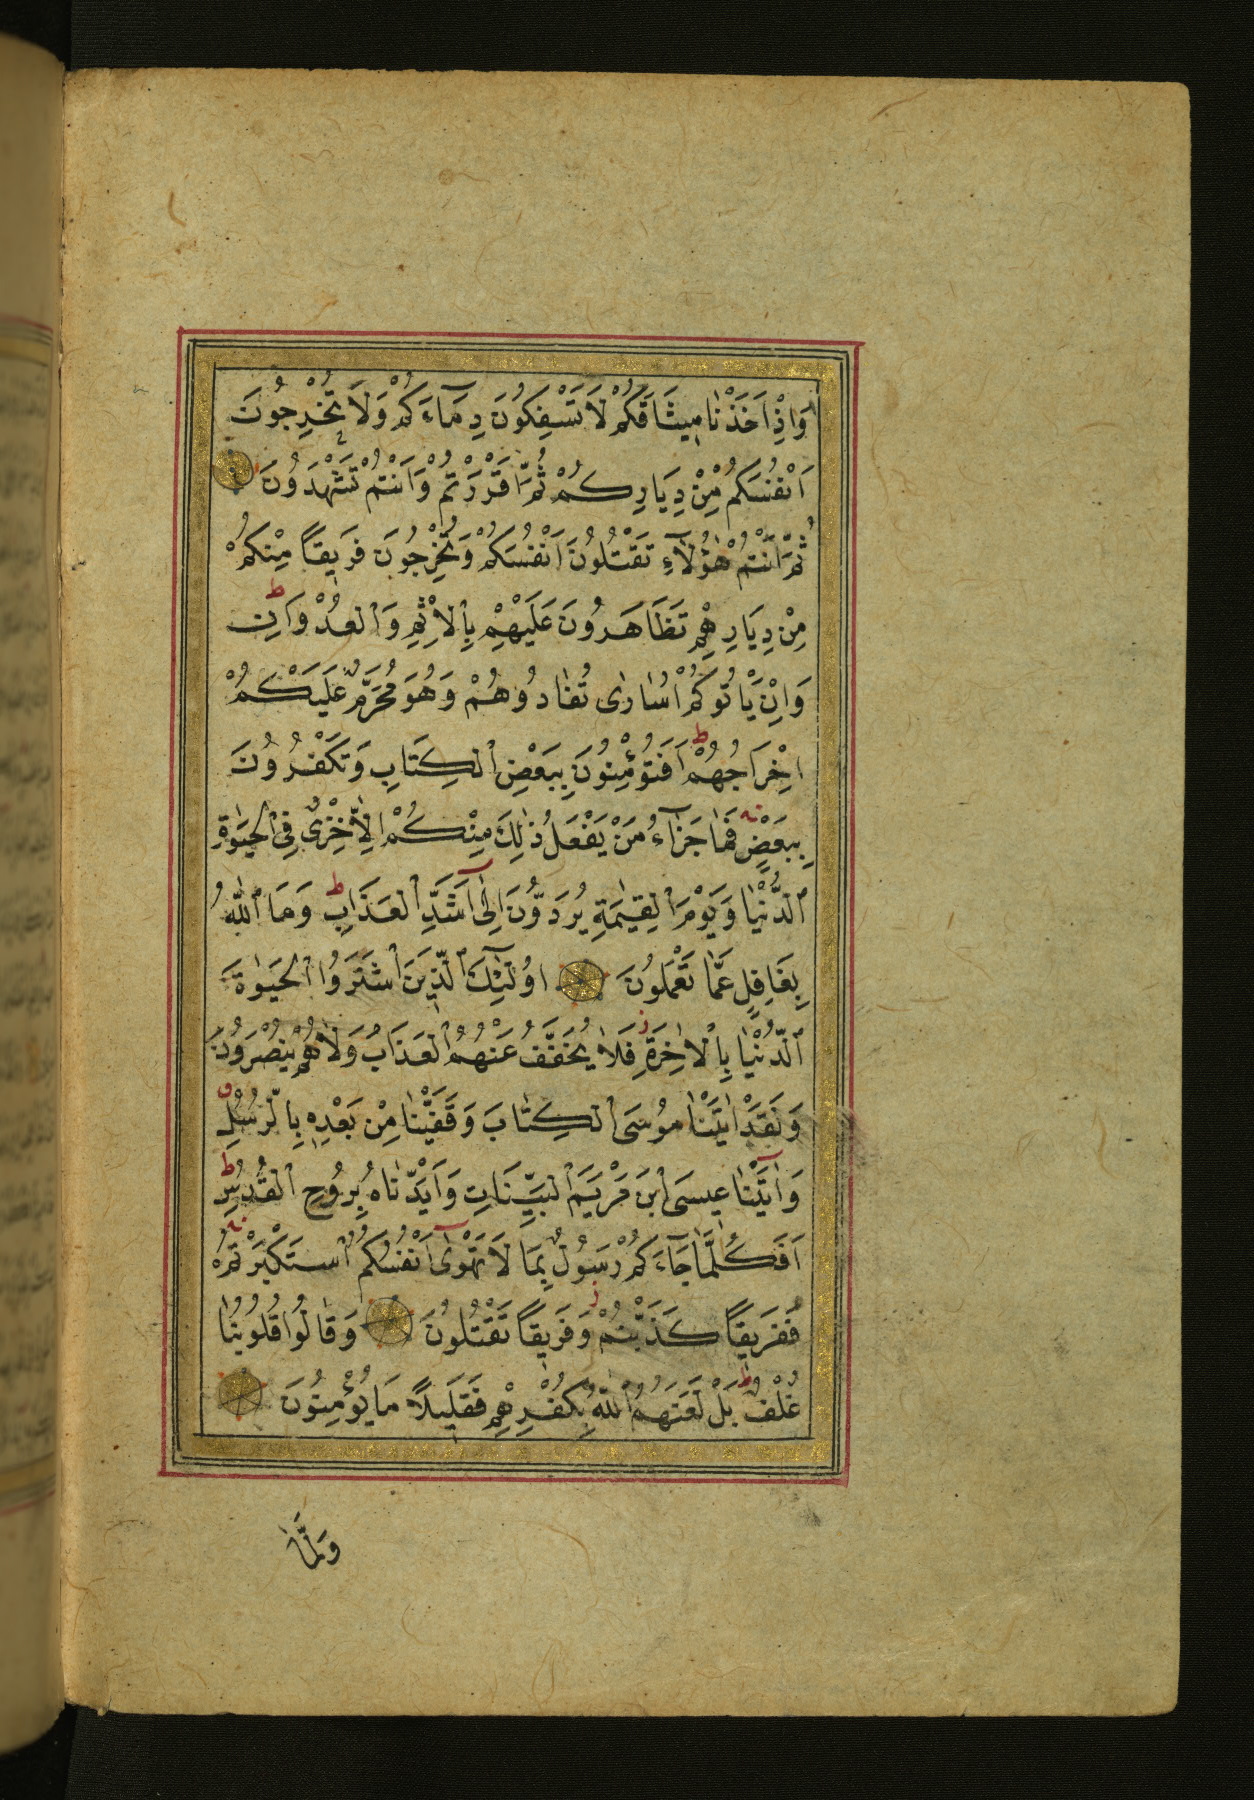 وَاِذْ اَخَذْنَا مِيثَاقَكُمْ لَا تَسْفِكُونَ دِمَآءَكُمْ وَلَا تُخْرِجُونَ
اَنْفُسَكُمْ مِنْ دِيَارِكُمْ ثُمَّ اَقْرَرْتُمْ وَاَنْتُمْ تَشْهَدُونَ
ثُمَّ اَنْتُمْ هٰٓؤُلَآءِ تَقْتُلُونَ اَنْفُسَكُمْ وَتُخْرِجُونَ فَرِيقًا مِنْكُمْ
مِنْ دِيَارِهِمْ تَظَاهَرُونَ عَلَيْهِمْ بِالْاِثْمِ وَالْعُدْوَانِ ط
وَاِنْ يَاْتُوكُمْ اُسَارٰى تُفَادُوهُمْ وَهُوَ مُحَرَّمٌ عَلَيْكُمْ
اِخْرَاجُهُمْ ط اَفَتُؤْمِنُونَ بِبَعْضِ الْكِتَابِ وَتَكْفُرُونَ
بِبَعْضٍ فَمَا جَزَآءُ مَنْ يَفْعَلُ ذٰلِكَ مِنْكُمْ اِلَّا خِزْىٌ فِى الْحَيٰوةِ
الدُّنْيَا وَيَوْمَ الْقِيٰمَةِ يُرَدُّونَ اِلٰٓى اَشَدِّ الْعَذَابِ ط وَمَا اللّٰهُ
بِغَافِلٍ عَمَّا تَعْمَلُونَ اُولٰٓئِكَ الَّذِينَ اشْتَرَوُا الْحَيٰوةَ
الدُّنْيَا بِالْاٰخِرَةِ ز فَلَا يُخَفَّفُ عَنْهُمُ الْعَذَابُ وَلَا هُمْ يُنْصَرُونَ
وَلَقَدْ اٰتَيْنَا مُوسَى الْكِتَابَ وَقَفَّيْنَا مِنْ بَعْدِهٖ بِالرُّسُلِ
وَاٰتَيْنَا عِيسَى ابْنَ مَرْيَمَ الْبَيِّنَاتِ وَاَيَّدْنَاهُ بِرُوحِ الْقُدُسِ ط
اَفَكُلَّمَا جَآءَكُمْ رَسُولٌ بِمَا لَا تَهْوٰٓى اَنْفُسُكُمُ اسْتَكْبَرْتُمْ
فَفَرِيقًا كَذَّبْتُمْ ز وَفَرِيقًا تَقْتُلُونَ وَقَالُوا قُلُوبُنَا
غُلْفٌ ط بَلْ لَعَنَهُمُ اللّٰهُ بِكُفْرِهِمْ فَقَلِيلًا مَا يُؤْمِنُونَ
وَلَمَّا